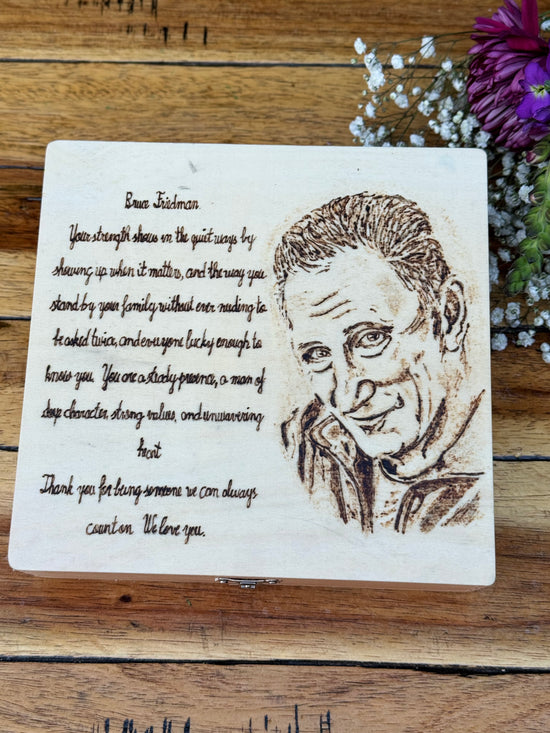 Bruce Friedman
Your strength shows in the quiet ways by
showing up when it matters, and the way you
stand by your family without ever needing to
be asked twice, and everyone lucky enough to
know you. You are a steady presence, a man of
deep character, strong values, and unwavering
heart
Thank you for being someone we can always
count on We love you.